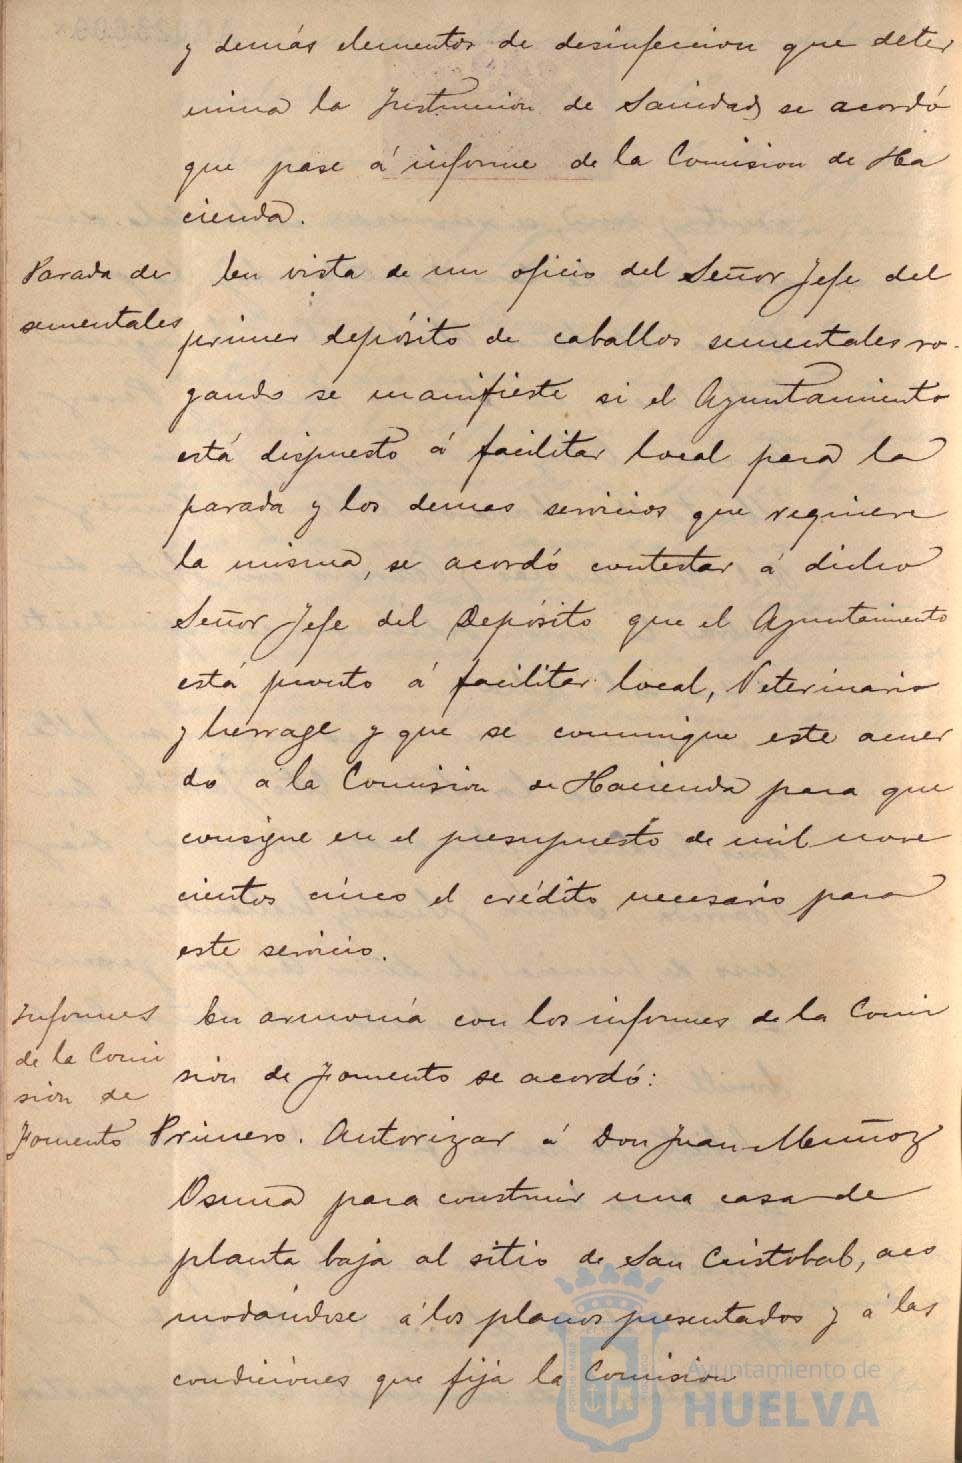 y demás elementos de desinfeccion que deter
mina la Instruccion de Sanidad, se acordó
que pase á informe de la Comision de Ha
cienda.
Parada de
sementales
En vista de un oficio del Señor Jefe del
primer depósito de caballos sementales ro-
gando se manifieste si el Ayuntamiento
está dispuesto á facilitar local para la
parada y los demas servicios que requiere
la misma, se acordó contestar á dicho
Señor Jefe del Depósito que el Ayuntamiento
está pronto á facilitar local, Veterinario
y herrage y que se comunique este acuer
do á la Comision de Hacienda para que
consigne en el presupuesto de mil nove
cientos cinco el crédito necesario para
este servicio.
Informes
de la Comi
sión de
Fomento
En armonía con los informes de la Comi
sión de Fomento se acordó:
Primero. Autorizar á Don Juan Muñoz
Osuna para construir una casa de
planta baja al sitio de San Cristobal, aco
modándose á los planos presentados y á las
condiciones que fija la Comision
Ayuntamiento de
HUELVA